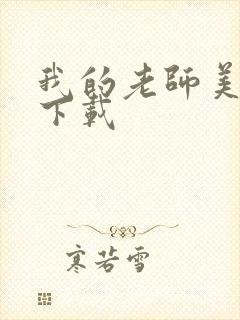 我的老師美
下載
寒若雪